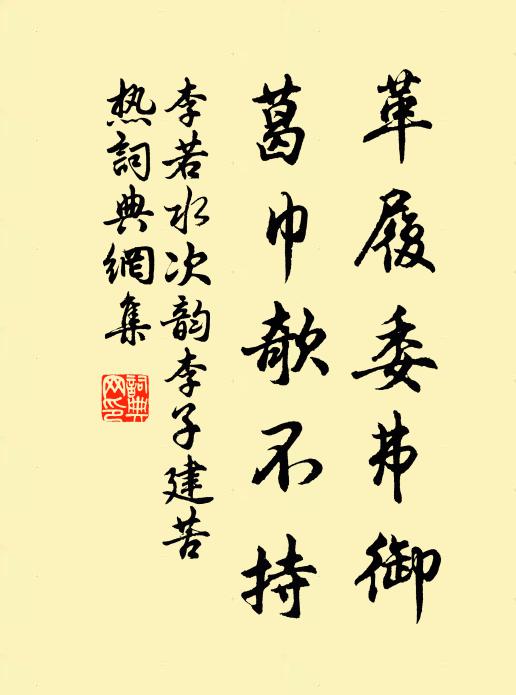 革履委弗御
葛巾欹不持
李若水次韵李子建苦
热詞典網集
詞典
网印